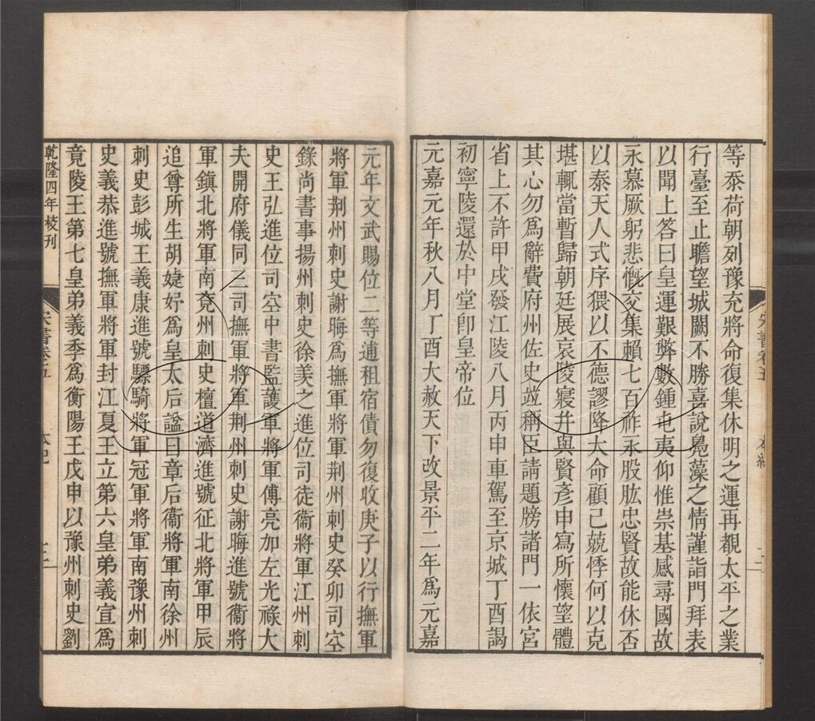 等忝荷朝列豫充將命復集休明之運再覩太平之業
行臺至止瞻望城闕不勝喜說鳧藻之情謹詣門拜表
以聞上荅曰皇運艱弊數鍾屯夷仰惟崇基感尋國故
永慕厥躬悲慨交集賴七百祚永股肱忠賢故能休否
以泰天人式序猥以不德謬降大命顧己兢悸何以克
堪輒當暫歸朝廷展哀陵寢幷與賢彥申寫所懷望體
其心勿爲辭費府州佐史竝稱臣請題牓諸門一依宮
省上不許甲戌發江陵八月丙申車駕至京城丁酉謁
初寧陵還於中堂卽皇帝位
元嘉元年秋八月丁酉大赦天下改景平二年爲元嘉
宋書卷五 本紀 二
元年文武賜位二等逋租宿債勿復收庚子以行撫軍
將軍荆州刺史謝晦爲撫軍將軍荆州刺史癸卯司空
錄尚書事揚州刺史徐羨之進位司徒衞將軍江州刺
史王弘進位司空中書監護軍將軍傅亮加左光祿大
夫開府儀同三司撫軍將軍荆州刺史謝晦進號衞將
軍鎮北將軍南兗州刺史檀道濟進號征北將軍甲辰
追尊所生胡婕妤爲皇太后諡曰章后衞將軍南徐州
刺史彭城王義康進號驃騎將軍冠軍將軍南豫州刺
史義恭進號撫軍將軍封江夏王立第六皇弟義宣爲
竟陵王第七皇弟義季爲衡陽王戊申以豫州刺史劉
乾隆四年校刊 宋書卷五 本紀 三